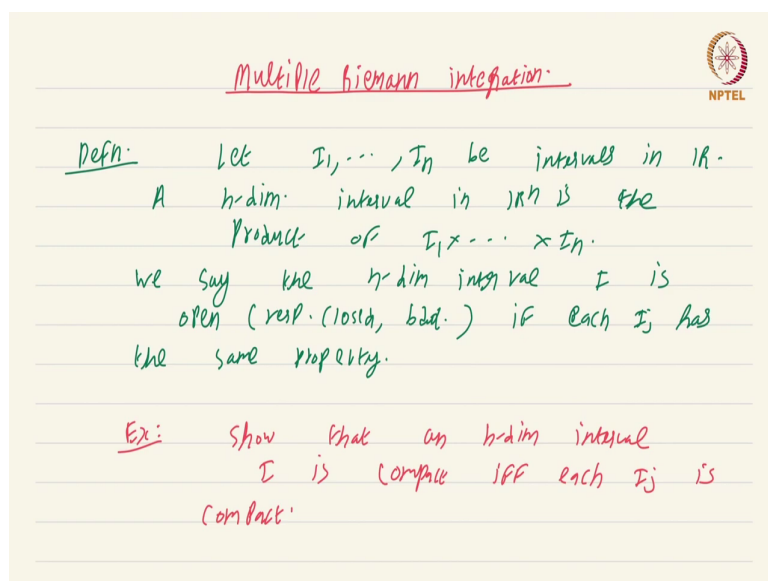 Multiple Riemann integration.
NPTEL
Defn. Let I₁, ..., Iₙ be intervals in ℝ.
A n-dim. interval in ℝⁿ is the
Product of I₁ × ... × Iₙ.
we say the n-dim interval I is
open (resp. closed, bdd.) if each Iⱼ has
the same property.
Ex: Show that an n-dim interval
I is compact iff each Iⱼ is
compact.